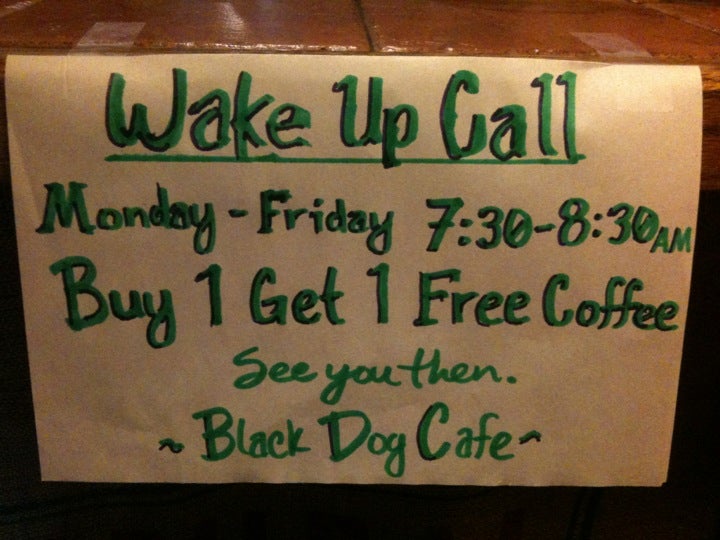 Wake Up Call
Monday - Friday 7:30-8:30 AM
Buy 1 Get 1 Free Coffee
See you then.
~ Black Dog Cafe ~